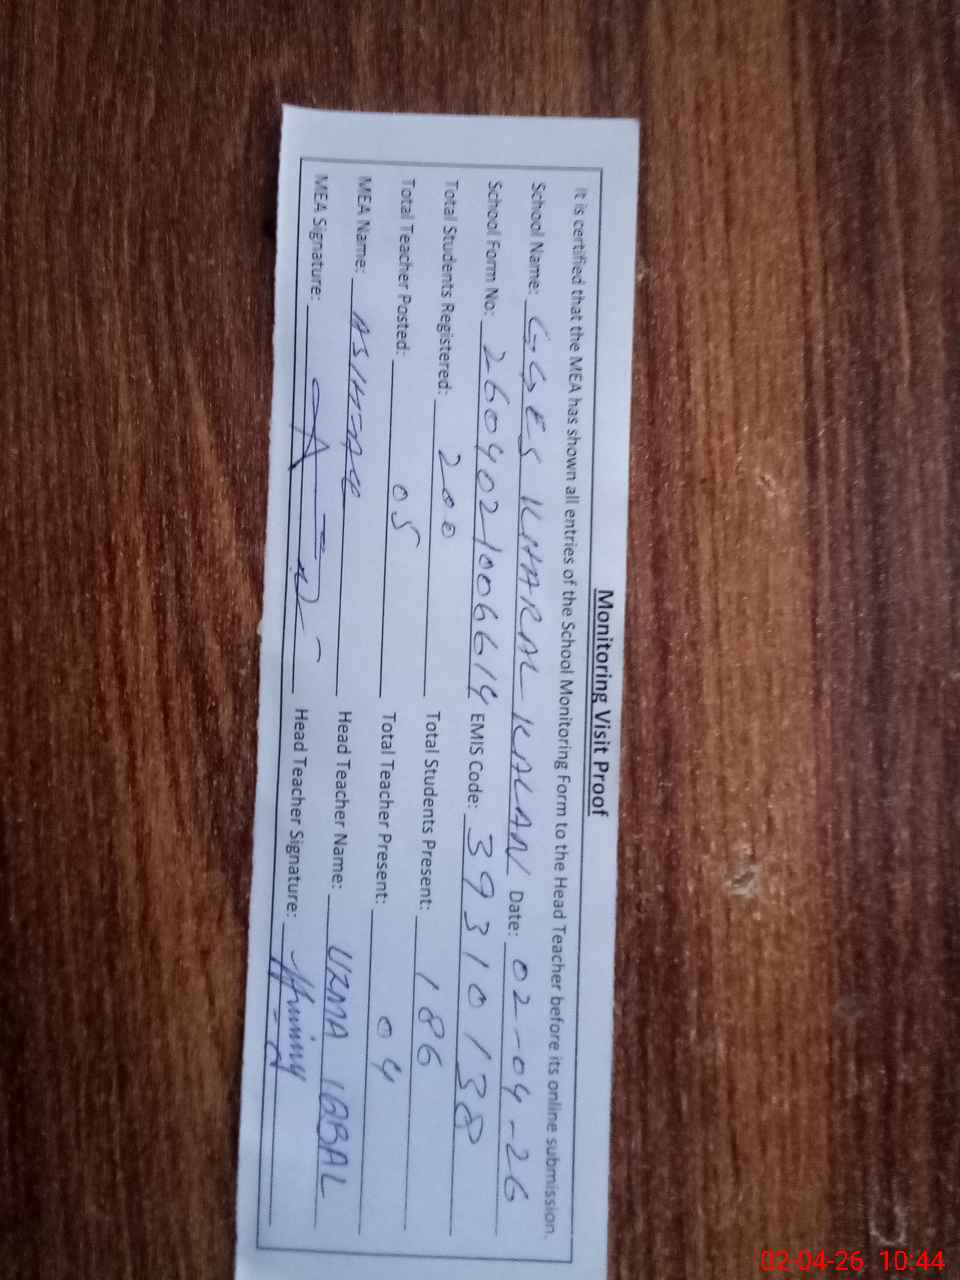 Monitoring Visit Proof
It is certified that the MEA has shown all entries of the School Monitoring Form to the Head Teacher before its online submission.
School Name: GGES KHARAL KALAN Date: 02-04-26
School Form No: 2604021006614 EMIS Code: 39310138
Total Students Registered: 200 Total Students Present: 186
Total Teacher Posted: 05 Total Teacher Present: 04
MEA Name: Head Teacher Name: UZMA IQBAL
MEA Signature: Head Teacher Signature:
02-04-26 10:44